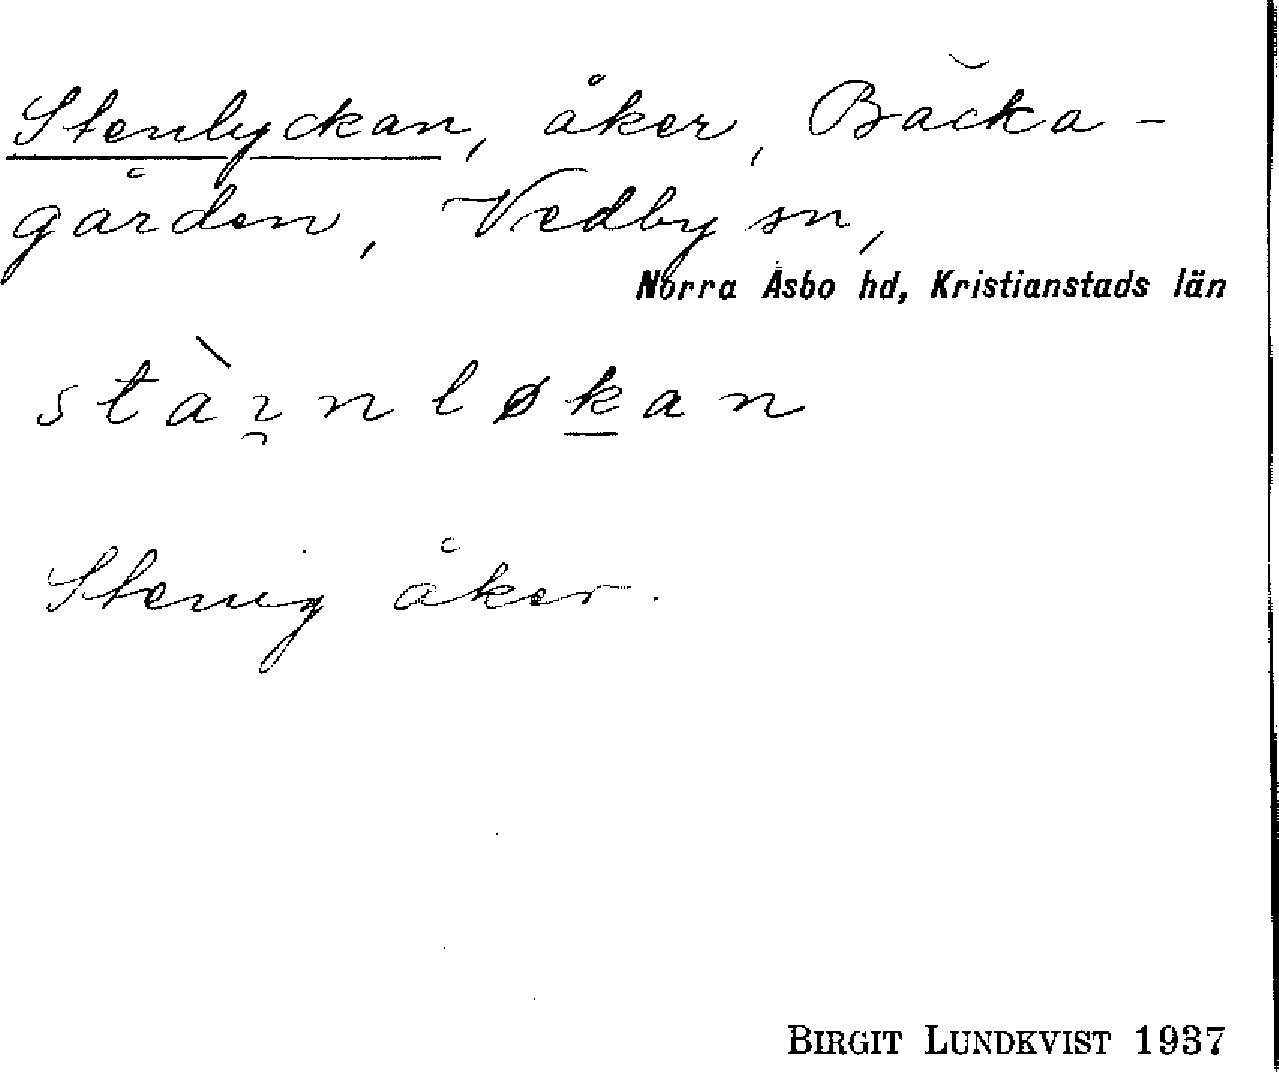 Stenlyckan, åker, Bäcka-
gården, Vedby sn,
Norra Åsbo hd, Kristianstads län
stàı̯nløk̲an
Stenig åker.
BIRGIT LUNDKVIST 1937